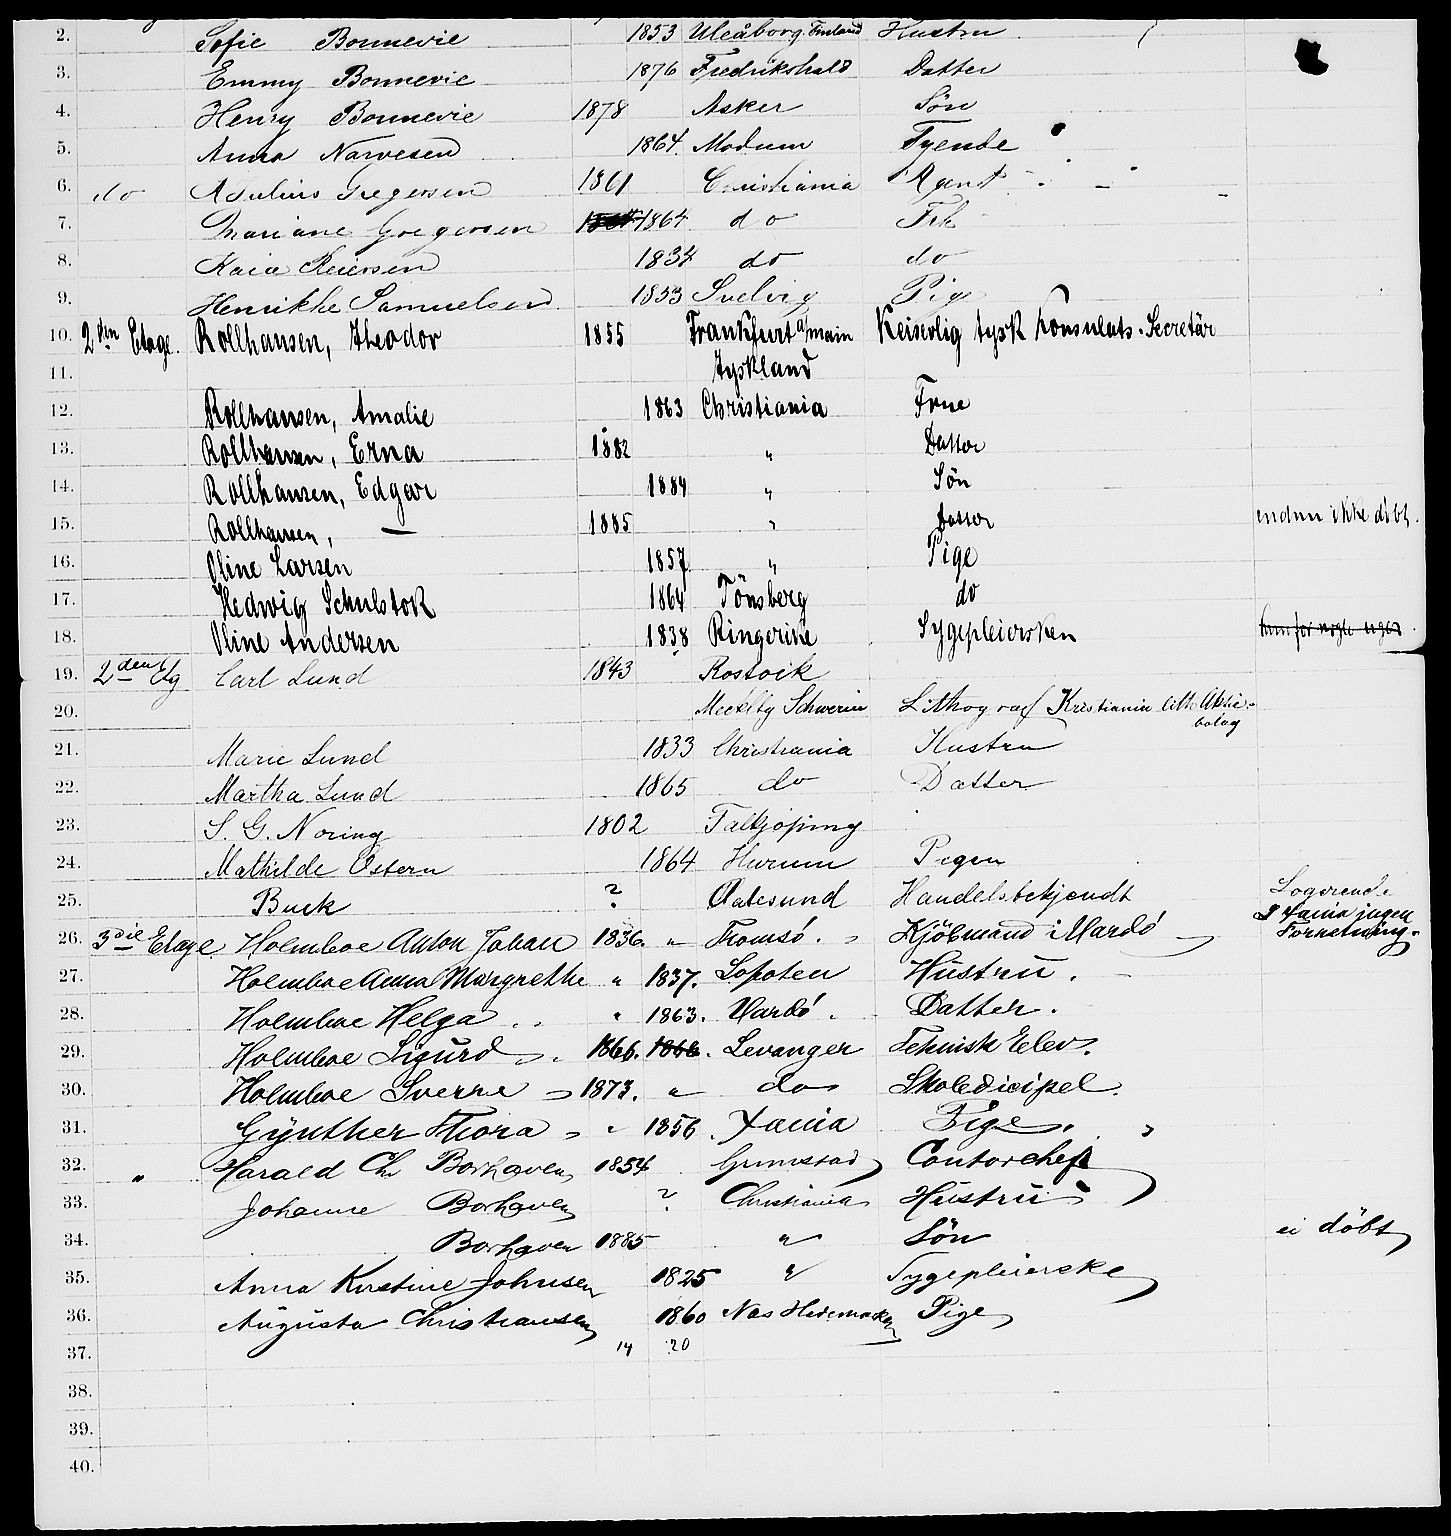 2. Sofie Bonnevie 1853 Uleåborg. Finland Hustru
3. Emmy Bonnevie 1876 Fredrikshald Datter
4. Henry Bonnevie 1878 Asker Søn
5. Anna Narvesen 1864. Modum Tyende
6. do Gregersen 1861 Christiania Agent
7. Mariane Gregersen 1864 do Frk
8. Kaia Reiersen 1834 do do
9. Henrikke Samuelsen 1853 Svelvig Pige
10. 2den Etage. Rollhansen, Theodor 1855 Frankfurt a/main Keiserlig tysk konsulats-Secretär
11. tyskland
12. Rollhansen, Amalie 1863 Christiania Frue
13. Rollhansen, Erna 1882 " Datter
14. Rollhansen, Edgar 1884 " Sön
15. Rollhansen, — 1885 " Datter endnu ikke döbt.
16. Oline Larsen 1857 " Pige
17. Hedwig Schulstok 1864 Tönsberg do
18. Oline Andersen 1838 Ringerike Sygepleiersken kun for nogle uger
19. 2den Etg Carl Lund 1843 Rostock
20. Mecklbg Schwerin Lithograf Kristiania lith. Aktie-
bolag
21. Marie Lund 1833 Christiania Hustru
22. Martha Lund 1865 do Datter
23. S. G. Noring 1802 Falkjöping
24. Mathilde Ostern 1864 Hurum Pigen
25. Buck ? Aalesund Handelsbetjendt Logerende
I Xania ingen
26. 3die Etage Holmboe Anton Johan 1836. " Tromsö. Kjöbmand i Vardö Forretning.
27. Holmboe Anna Margrethe " 1837. Lofoten Hustru.
28. Holmboe Helga " 1863. Vardö. Datter.
29. Holmboe Sigurd 1866. 1866. Levanger Teknisk Elev.
30. Holmboe Sverre 1873. " do Skoledicipel.
31. Gÿnther Thora " 1856. Xania Pige.
32. " Harald Chr Borhaven 1854 Grimstad Contorchef
33. Johanne Borhaven ? Christiania Hustru
34. Borhaven 1885 " Sön ei döbt
35. Anna Kirstine Johnsen 1825 " Sygepleierske
36. Augusta Christiansen 1860 Næs Hedemarken Pige
37. 14 20
38.
39.
40.